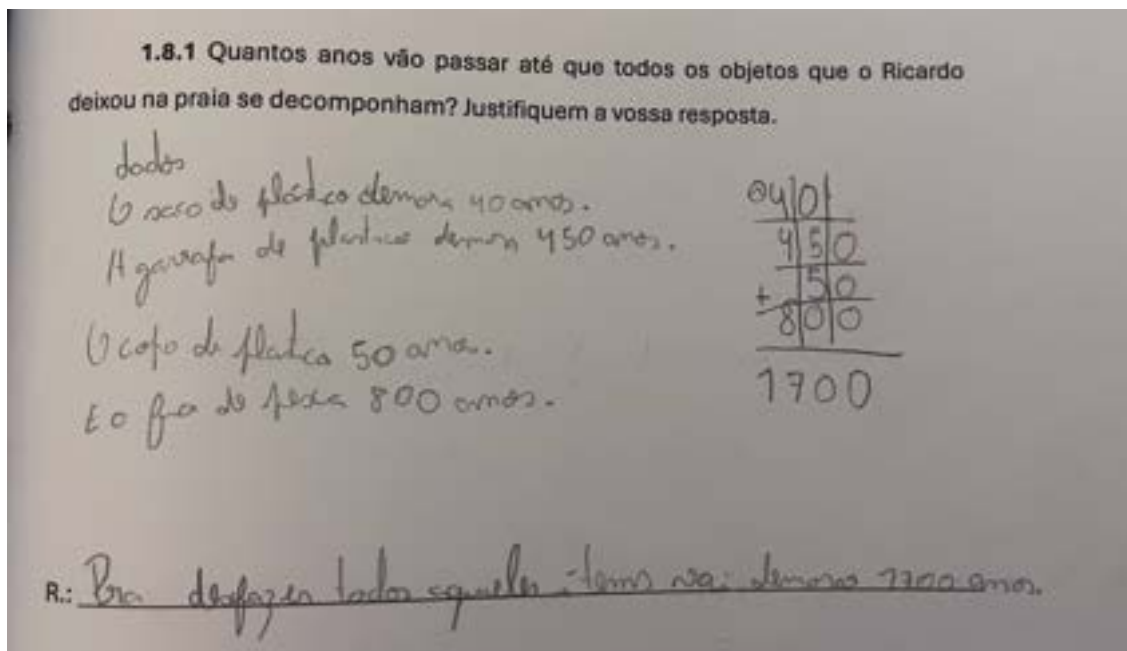 1.8.1 Quantos anos vão passar até que todos os objetos que o Ricardo
deixou na praia se decomponham? Justifiquem a vossa resposta.
dados
O saco de plástico demora 40 anos.
A garrafa de plastico demora 450 anos.
O copo de 50 anos.
E o fio de pesca 800 anos.
40
450
+ 50
800
1700
R.: Pra desfazer todos aqueles items vai demorar 1700 anos.